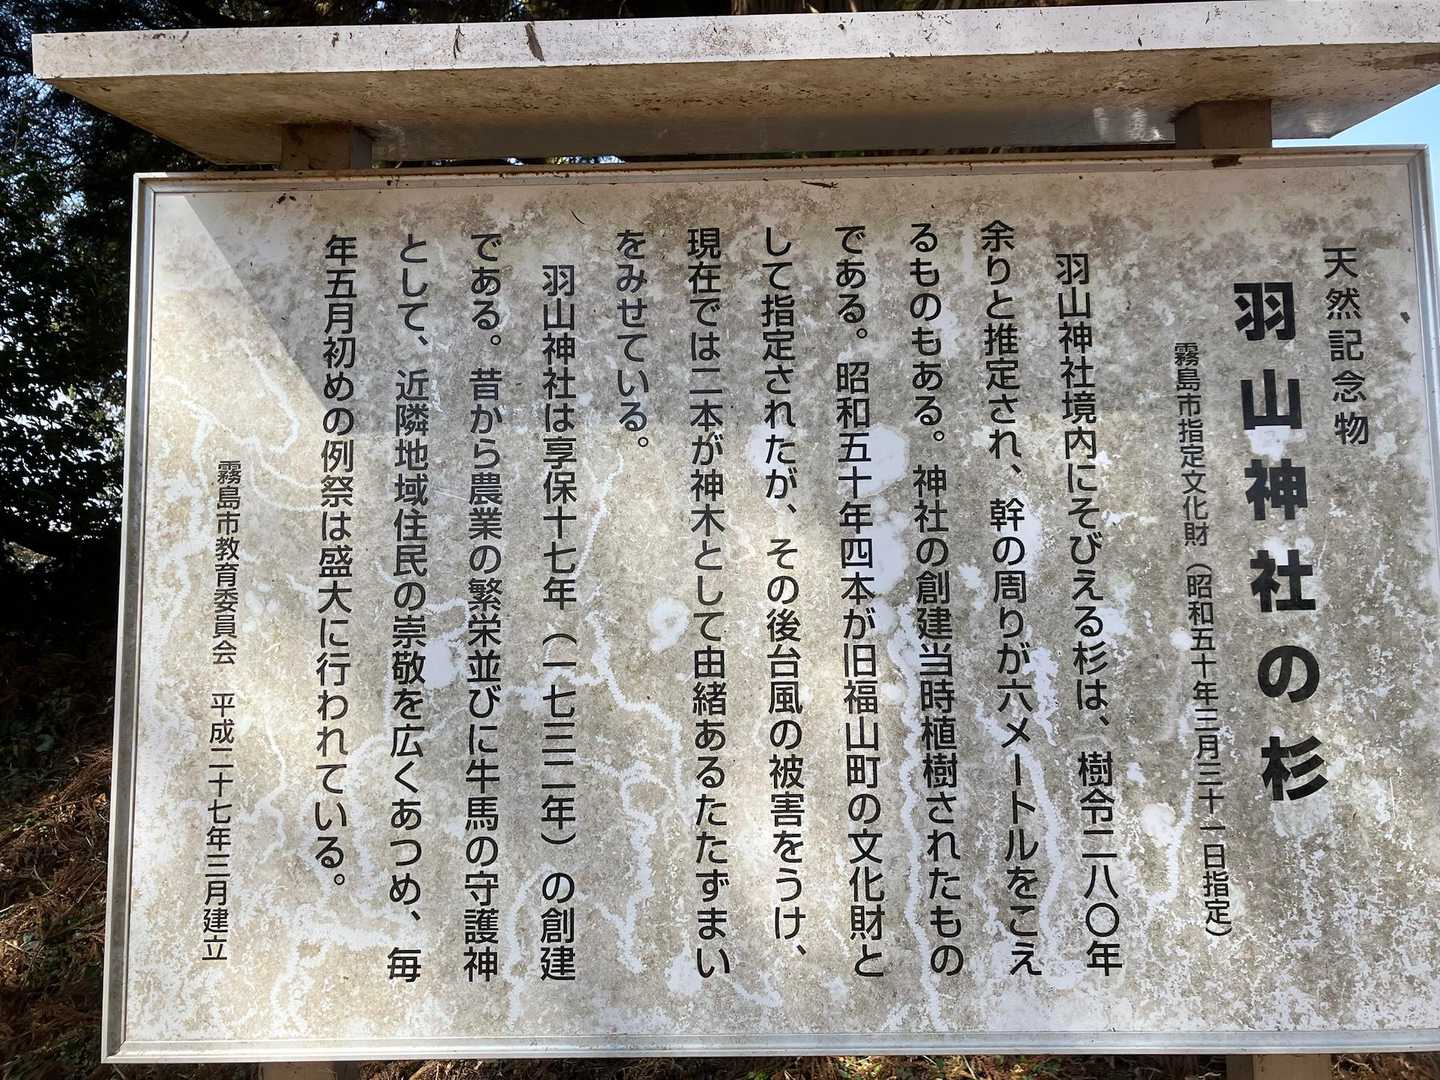 天然記念物
羽山神社の杉
霧島市指定文化財（昭和五十年三月三十一日指定）
羽山神社境内にそびえる杉は、樹令二八〇年
余りと推定され、幹の周りが六メートルをこえ
るものもある。神社の創建当時植樹されたもの
である。昭和五十年四本が旧福山町の文化財と
して指定されたが、その後台風の被害をうけ、
現在では二本が神木として由緒あるたたずまい
をみせている。
羽山神社は享保十七年（一七三二年）の創建
である。昔から農業の繁栄並びに牛馬の守護神
として、近隣地域住民の崇敬を広くあつめ、毎
年五月初めの例祭は盛大に行われている。
霧島市教育委員会　平成二十七年三月建立